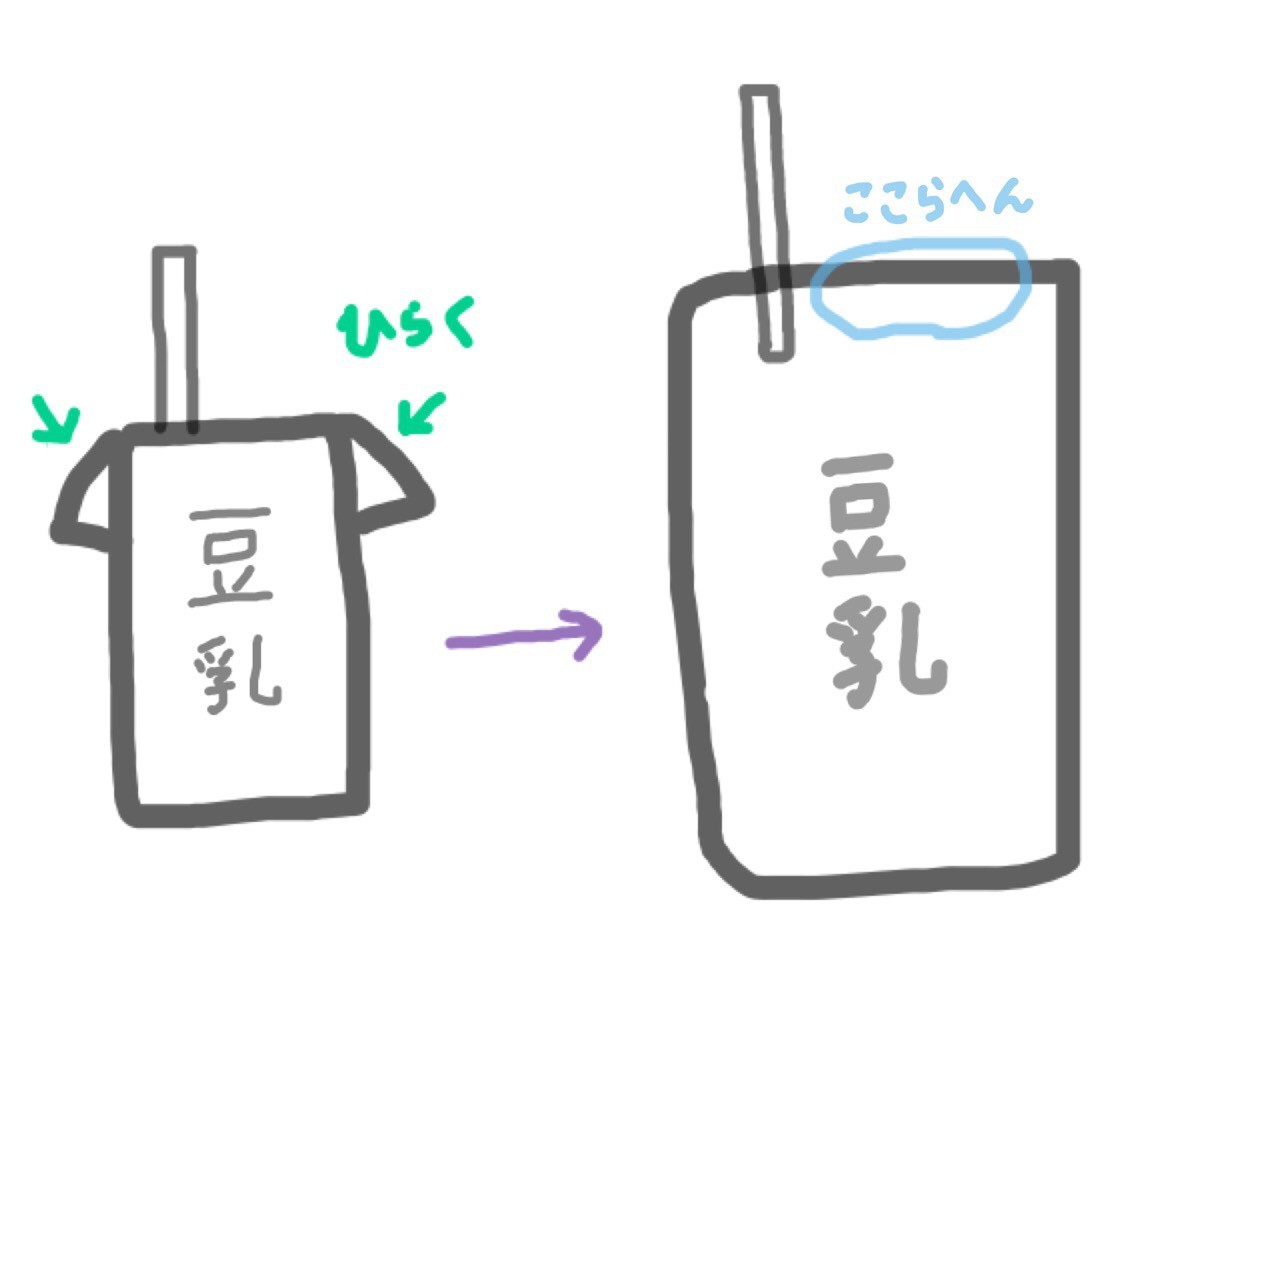 ひらく
豆乳
ここらへん
豆乳